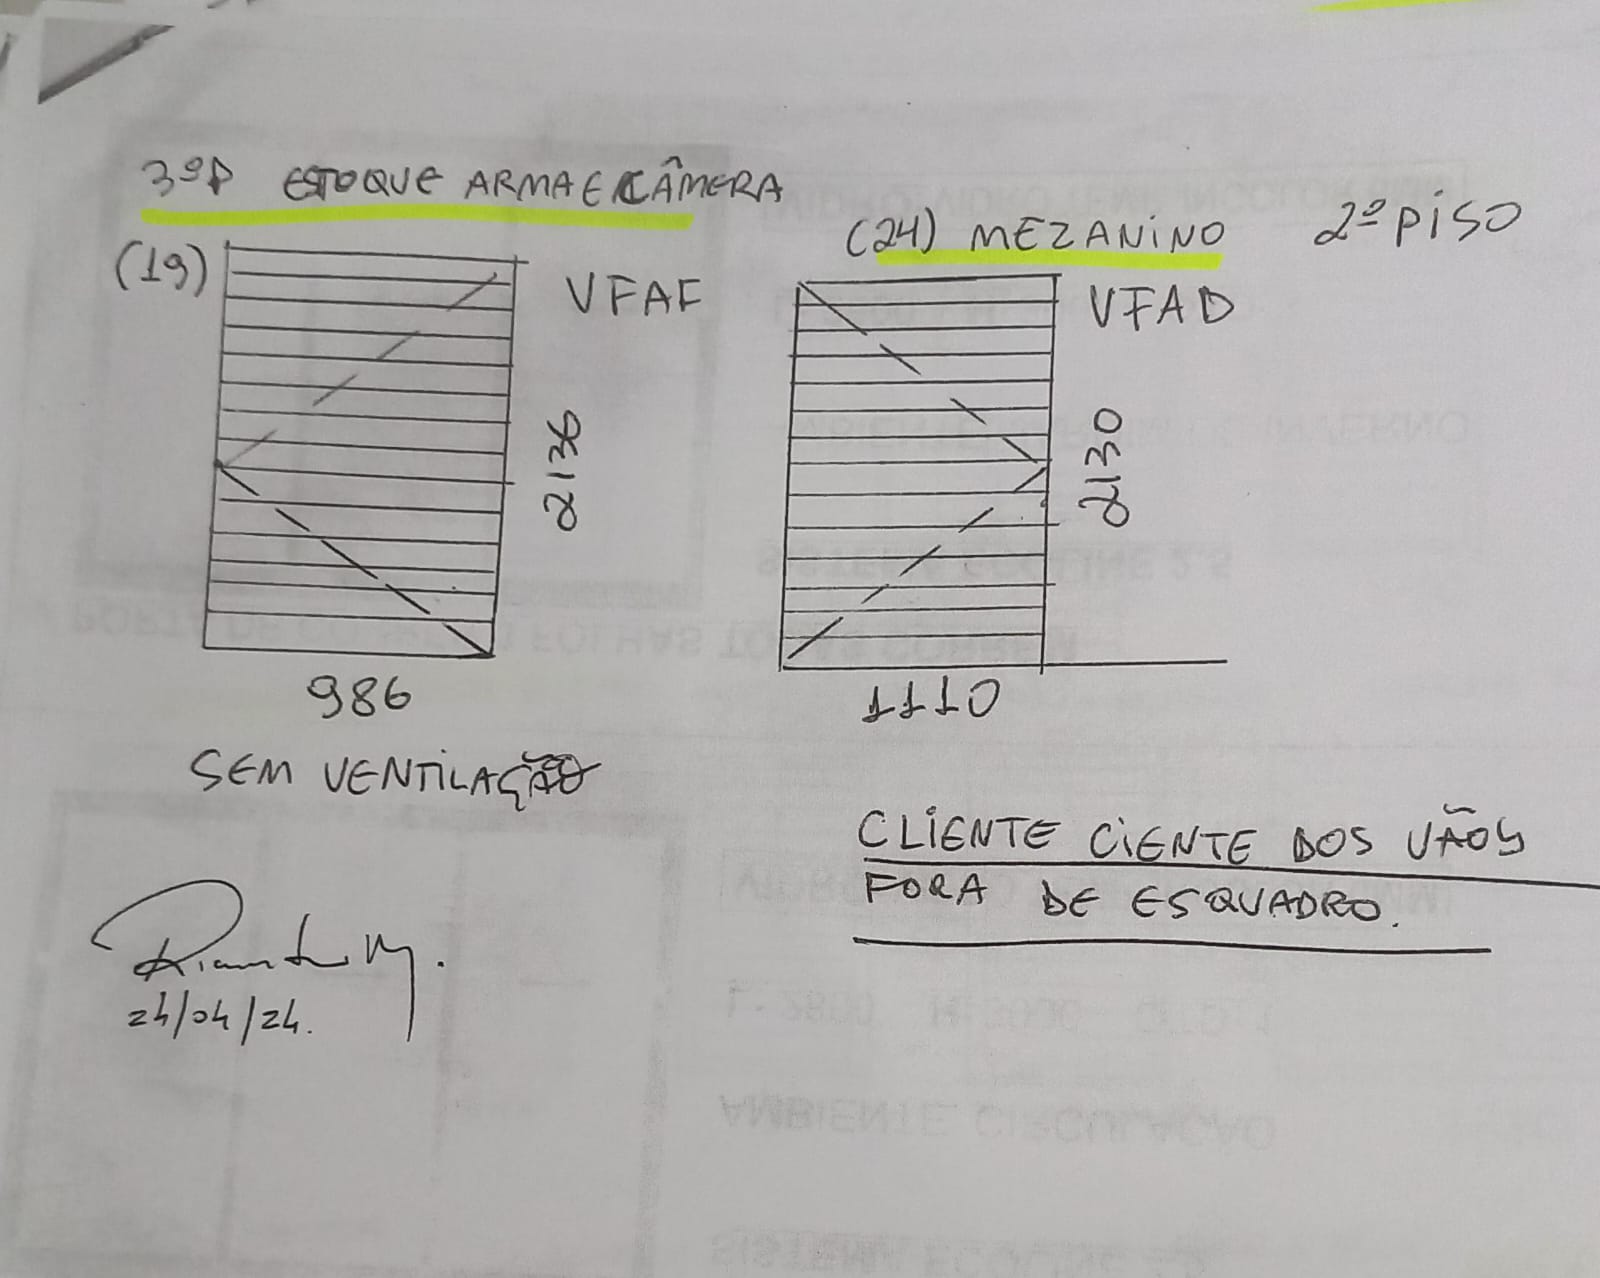 3ºP ESTOQUE ARMA E CÂMERA
(19)
VFAF
2136
986
SEM VENTILAÇÃO
(24) MEZANINO 2º PISO
VFAD
2130
1110
CLIENTE CIENTE DOS VÃOS
FORA DE ESQUADRO.
24/04/24.